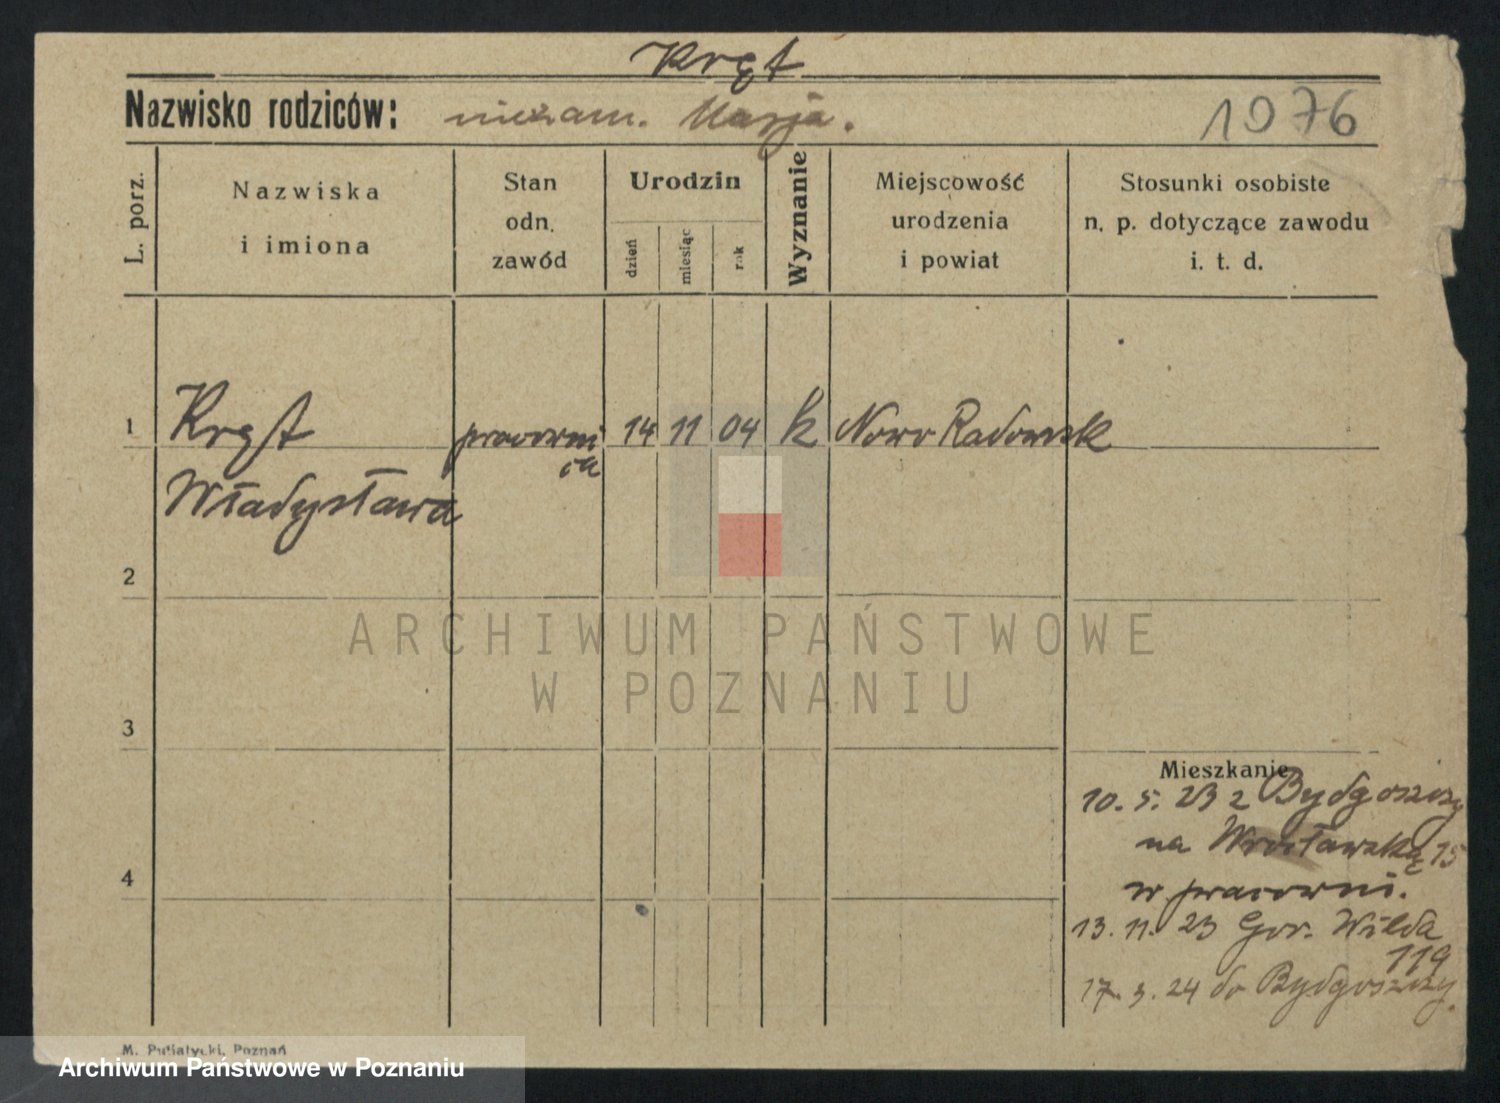 Kręt
Nazwisko rodziców: niezam. Marja.
1976
L. porz.
Nazwiska
i imiona
Stan
odn.
zawód
Urodzin
dzień
miesiąc
rok
Wyznanie
Miejscowość
urodzenia
i powiat
Stosunki osobiste
n. p. dotyczące zawodu
i. t. d.
1 Kręt 14 11 04 k Nowo Radomsk
Władysława
2
3
4
Mieszkanie
10. 5. 23 z Bydgoszczy
na Wrocławską 15
w pracowni.
13. 11. 23 Gór. Wilda
119
17. 3. 24 do Bydgoszczy.
ARCHIWUM PAŃSTWOWE
W POZNANIU
M. Putiatycki, Poznań
Archiwum Państwowe w Poznaniu